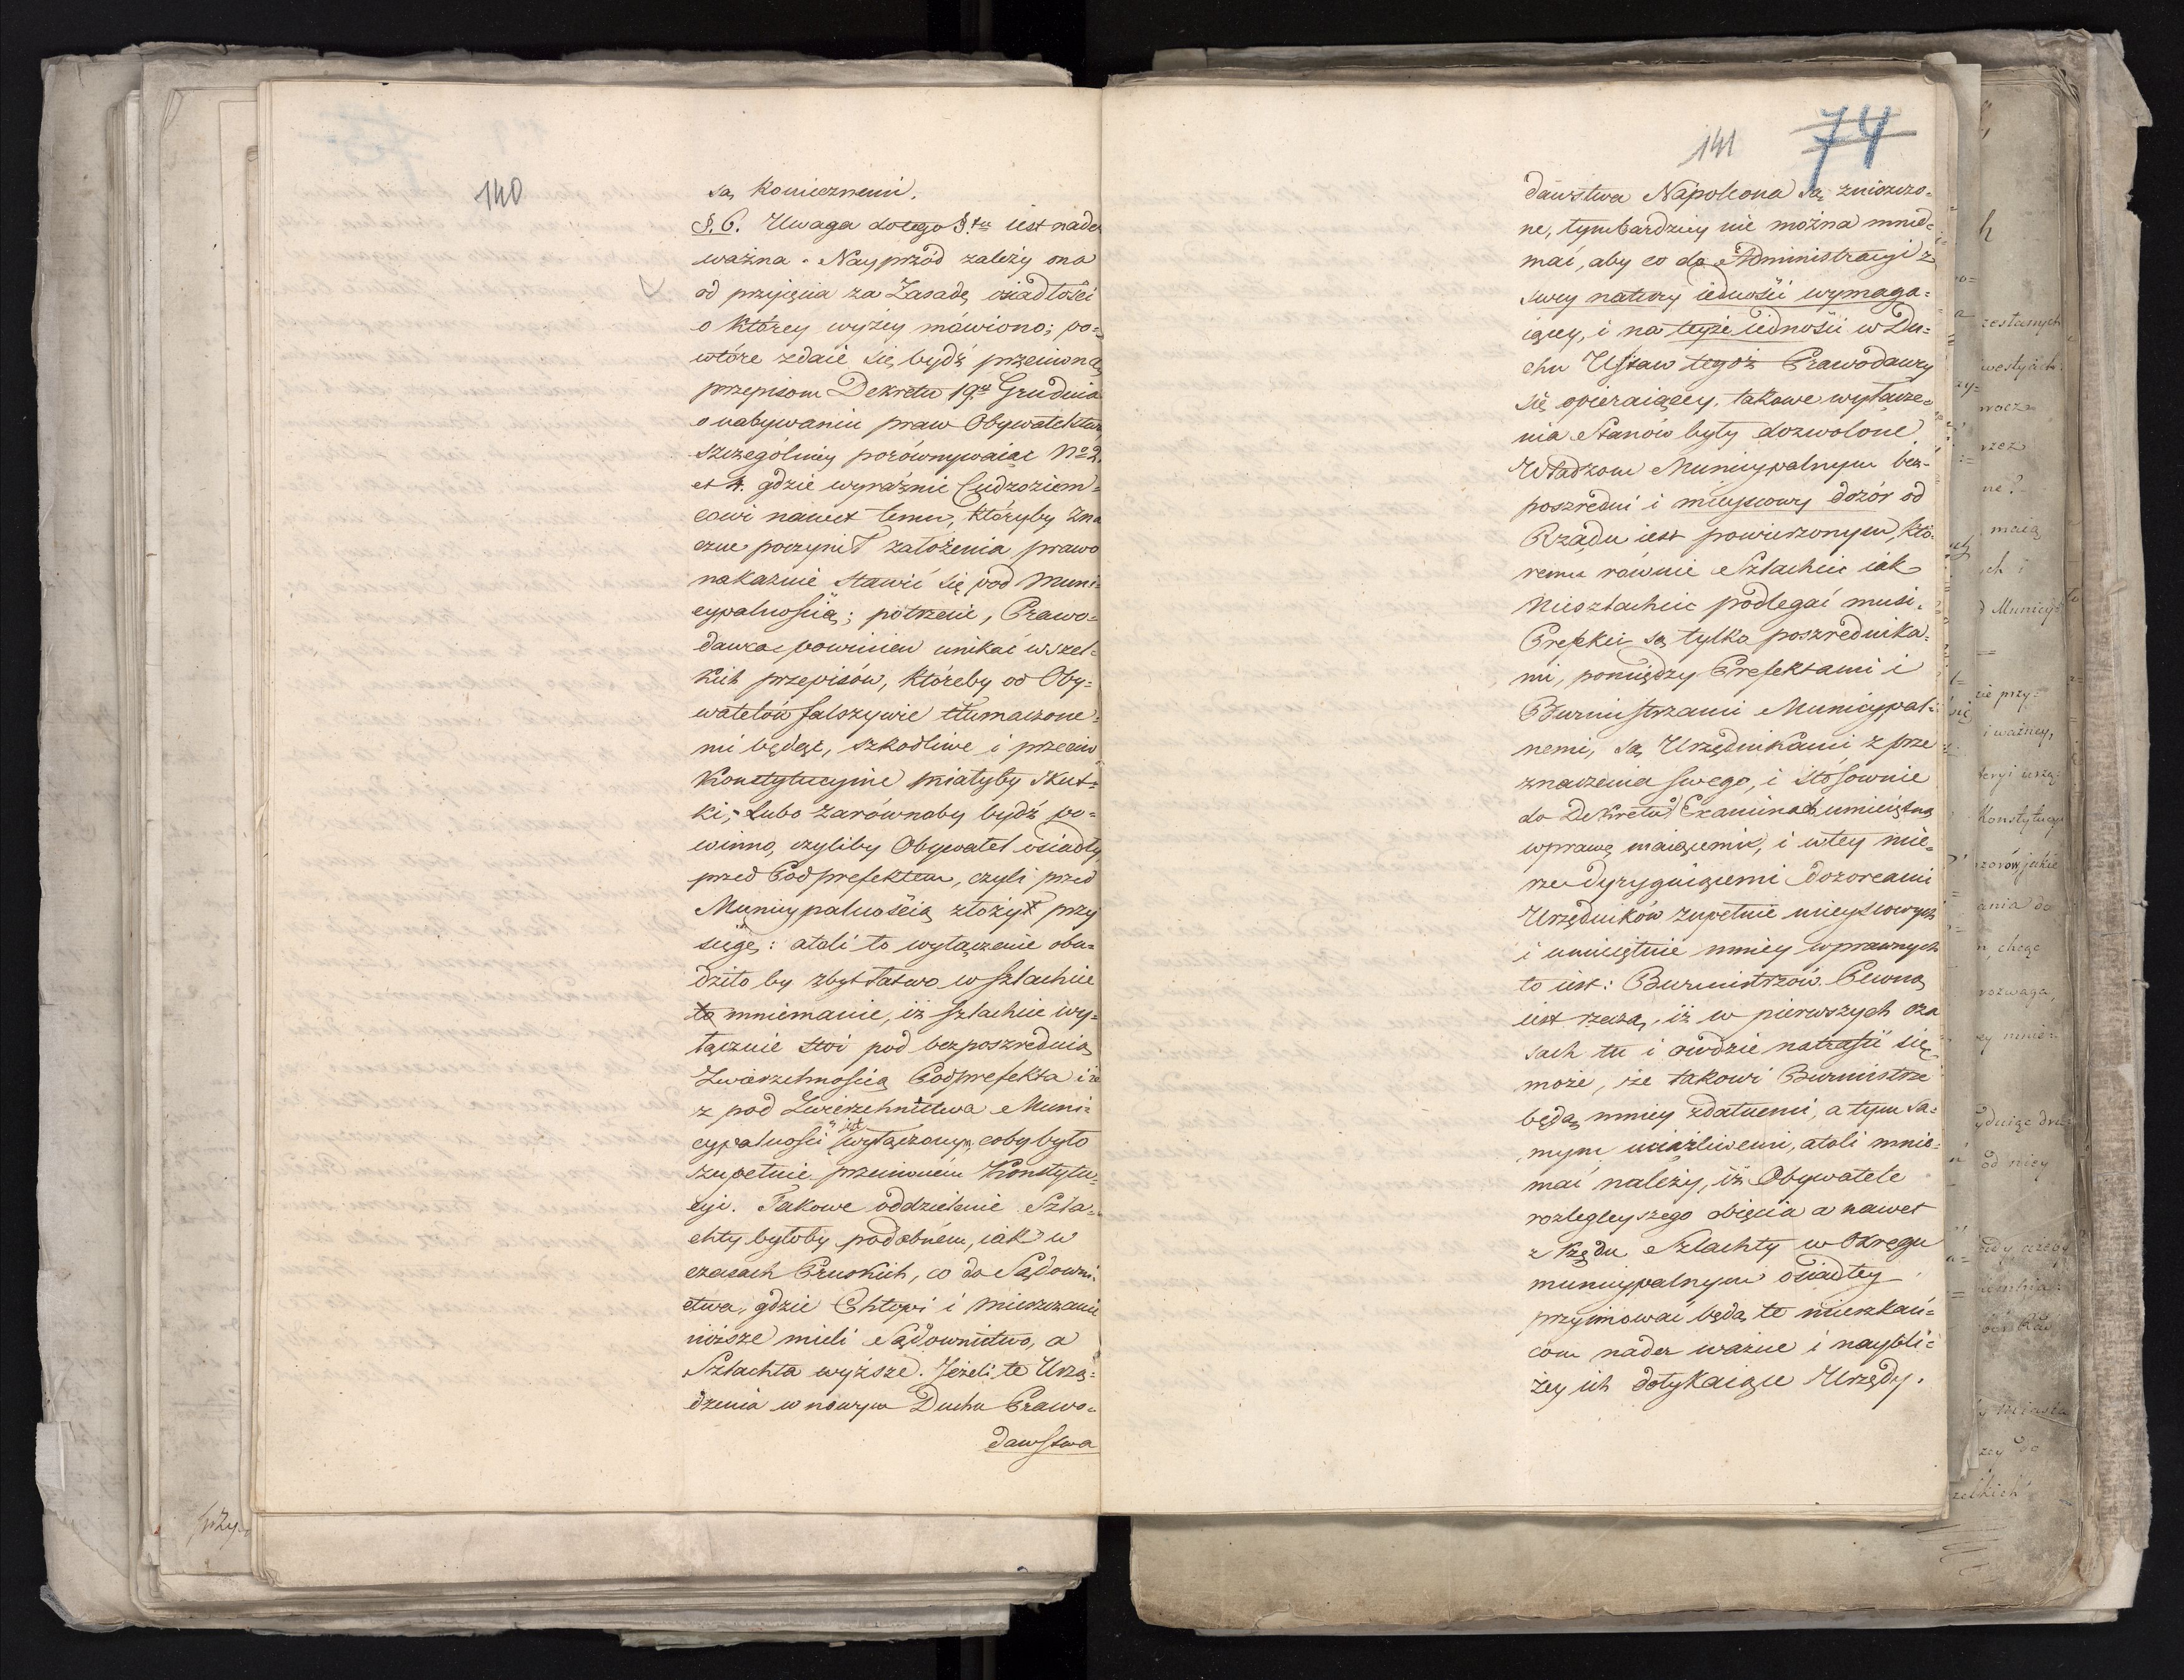 140
są koniecznemi.
§. 6. Uwaga do tego §. tu iest nader
ważna. Nayprzód zależy ona
od przyjęcia za Zasadę osiadłości
o którey wyżey mówiono; po=
wtóre zdaie się bydź przeciwną
przepisom Dekretu 19go Grudnia
o nabywaniu praw Obywatelstwa
szczególniey porównywaiąc No 2.
et 4. gdzie wyraźnie Cudzoziem=
cowi nawet temu, któryby zna
czne poczynił założenia prawo
nakazuie stawić się pod Muni=
cypalnością; potrzecie, Prawo=
dawca powinien unikać wszel=
kich przepisów, któreby od Oby=
watelów falszywie tłumaczone=
mi będąc, szkodliwe i przeciw
konstytucyine miałyby skut=
ki; - Lubo zarównoby bydź po=
winno, czyliby Obywatel osiadły
przed Podprefektem, czyli przed
Municypalnością złożył przy
sięgę: atoli to wyłączenie obu=
dziło by zbyt łatwo w szlachcie
to mniemanie, iż szlachcic wy=
łącznie stoi pod bezpośrednią
Zwierzchnością Podprefekta i że
z pod Zwierzchnictwa Muni=
cypalności iest wyłączonym, coby było
zupełnie przeciwném Konstytu=
cyi. Takowe oddzielenie Szla=
chty byłoby podobném, iak w
czasach Pruskich, co do Sądowni=
ctwa, gdzie Chłopi i mieszczanie
niższe mieli Sądownictwo, a
Szlachta wyższe. Jeżeli te Urzą=
dzenia w nowym Duchu Prawo=
dawstwa
141 74
dawstwa Napoleona są zniszczo=
ne, tymbardziey nie można mnie=
mać, aby co do Administracyi z
swey natury iedności wymaga=
iącey, i na teyże iedności w Du=
chu Ustaw tegoż Prawodawcy
się opieraiącey, takowe wyłącze=
nia Stanów były dozwolone.
Władzom Municypalnym bez=
poszredni i mieyscowy dozór od
Rządu iest powierzonym, któ=
remu równie Szlachcic iak
Nieszlachcic podlegać musi.
Prefekci są tylko poszrednika=
mi, pomiędzy Prefektami i
Burmistrzami Municypal=
nemi, są Urzędnikami z prze
znaczenia swego, i stósownie
do Dekretu Examinach umieiętną
wprawę maiącemi, i w tey mie=
rze dyryguiącemi Dozorcami
Urzędników zupełnie mieyscowych
i umieiętnie mniey wprawnych
to iest: Burmistrzów. Pewną
iest rzeczą, iż w pierwszych cza
sach tu i owdzie natrafić się
może, że takowi Burmistrze
będą mniey zdatnemi, a tym sa=
mym uciążliwemi, atoli mnie=
mać należy, iż Obywatele
rozlegleyszego obięcia a nawet
z Rzędu Szlachty w Okręgu
municypalnym osiadłey
przyimować będą te mieszkań=
com nader ważne i naybli=
żey ich dotykaiące Urzędy.